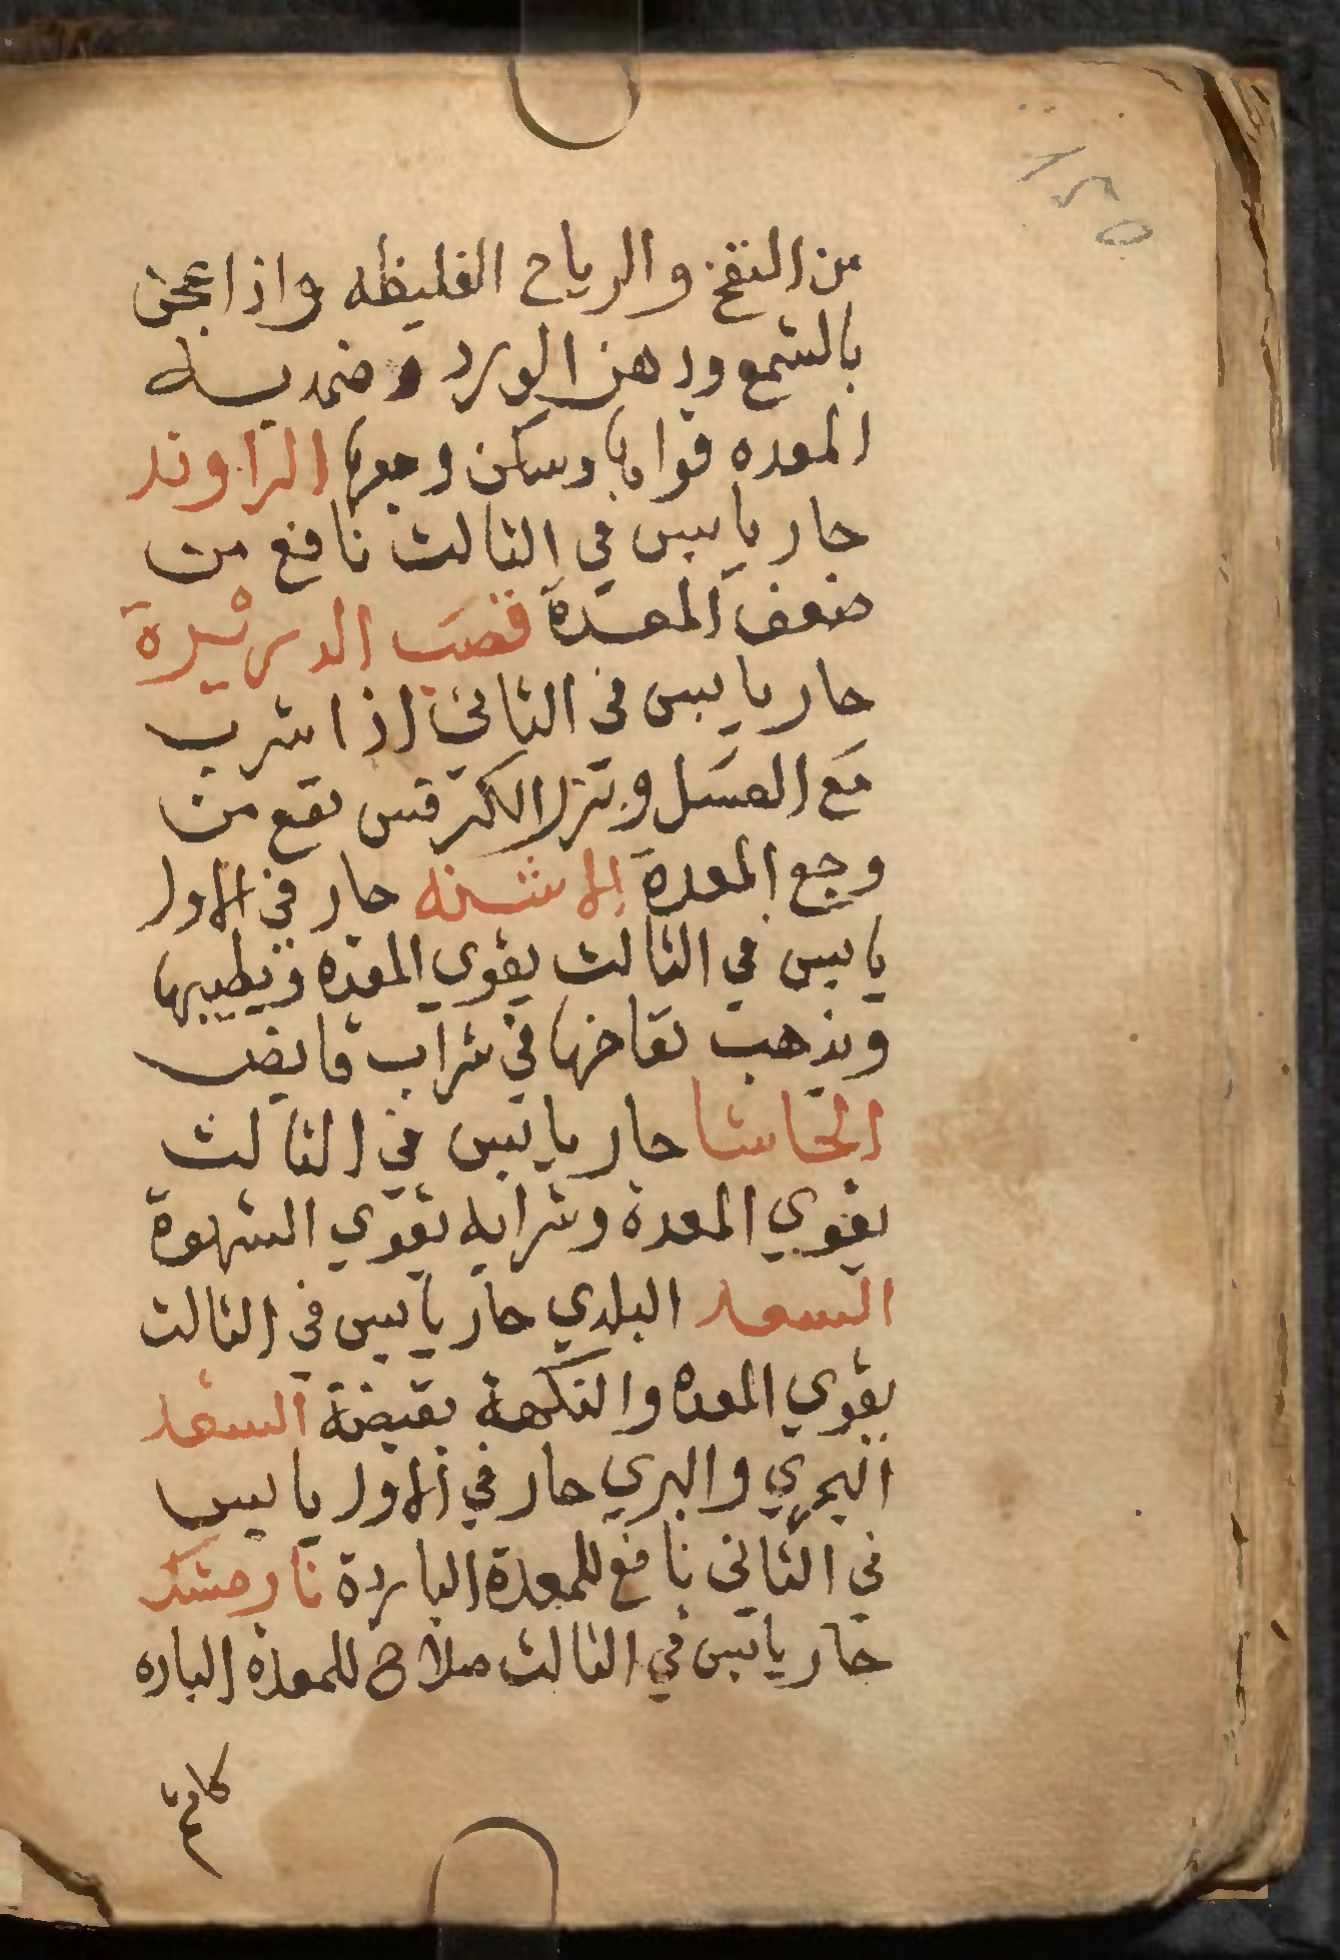 من النفخ والرياح الغليظه واذا عجن
بالشمع ودهن الورد وضمد به
المعده قواها وسكن وجعها الراوند
حار يابس في الثالث نافع من
ضعف المعدة قصب الدريرة
حار يابس في الثاني اذا شرب
مع العسل وبزر الكرفس نفع من
وجع المعدة الاشنه حار في الاول
يابس في الثالث يقوي المعده ويطيبها
ويذهب نفاخها في شراب قابض
الحاشا حار يابس في الثالث
يقوي المعدة وشرابه يقوي الشهوة
السعد البلدي حار يابس في الثالث
يقوي المعده والنكهة بقبضة السعد
البحري والبري حار في الاول يابس
في الثاني نافع للمعدة الباردة نارمشك
حار يابس في الثالث صلاح للمعدة البارده